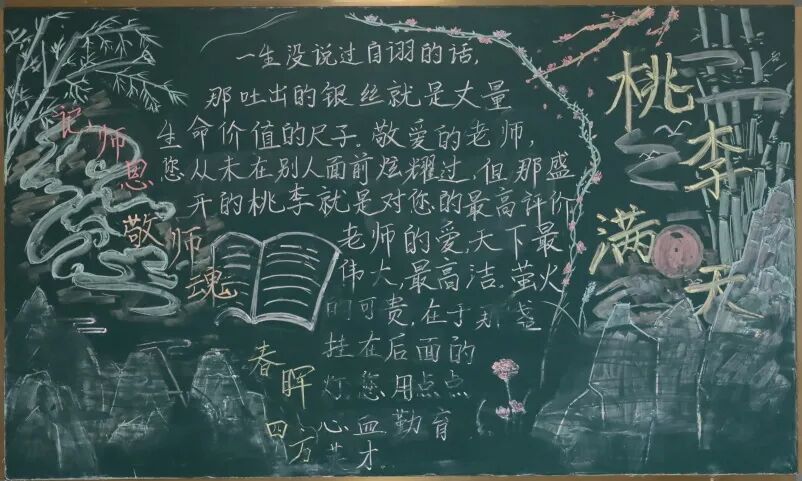 一生没说过自诩的话,
那吐出的银丝就是丈量
生命价值的尺子。敬爱的老师,
您从未在别人面前炫耀过,但那盛
开的桃李就是对您的最高评价
老师的爱,天下最
伟大,最高洁。萤火
的可贵,在于
挂在后面的
灯您用点点
心血勤育
英才
记师恩
敬师魂
春晖
四方
桃李
满天